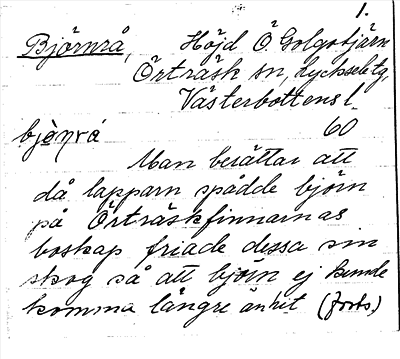 1.
Björnrå, Höjd Ö Golgotjärn
Örträsk sn, Lycksele tg,
Västerbottens l.
bjɵ̀ṇrá 60
Man berättar att
då lapparn spådde björn
på Örträskfinnarnas
boskap friade dessa sin
skog så att björn ej kunde
komma längre än hit (forts.)